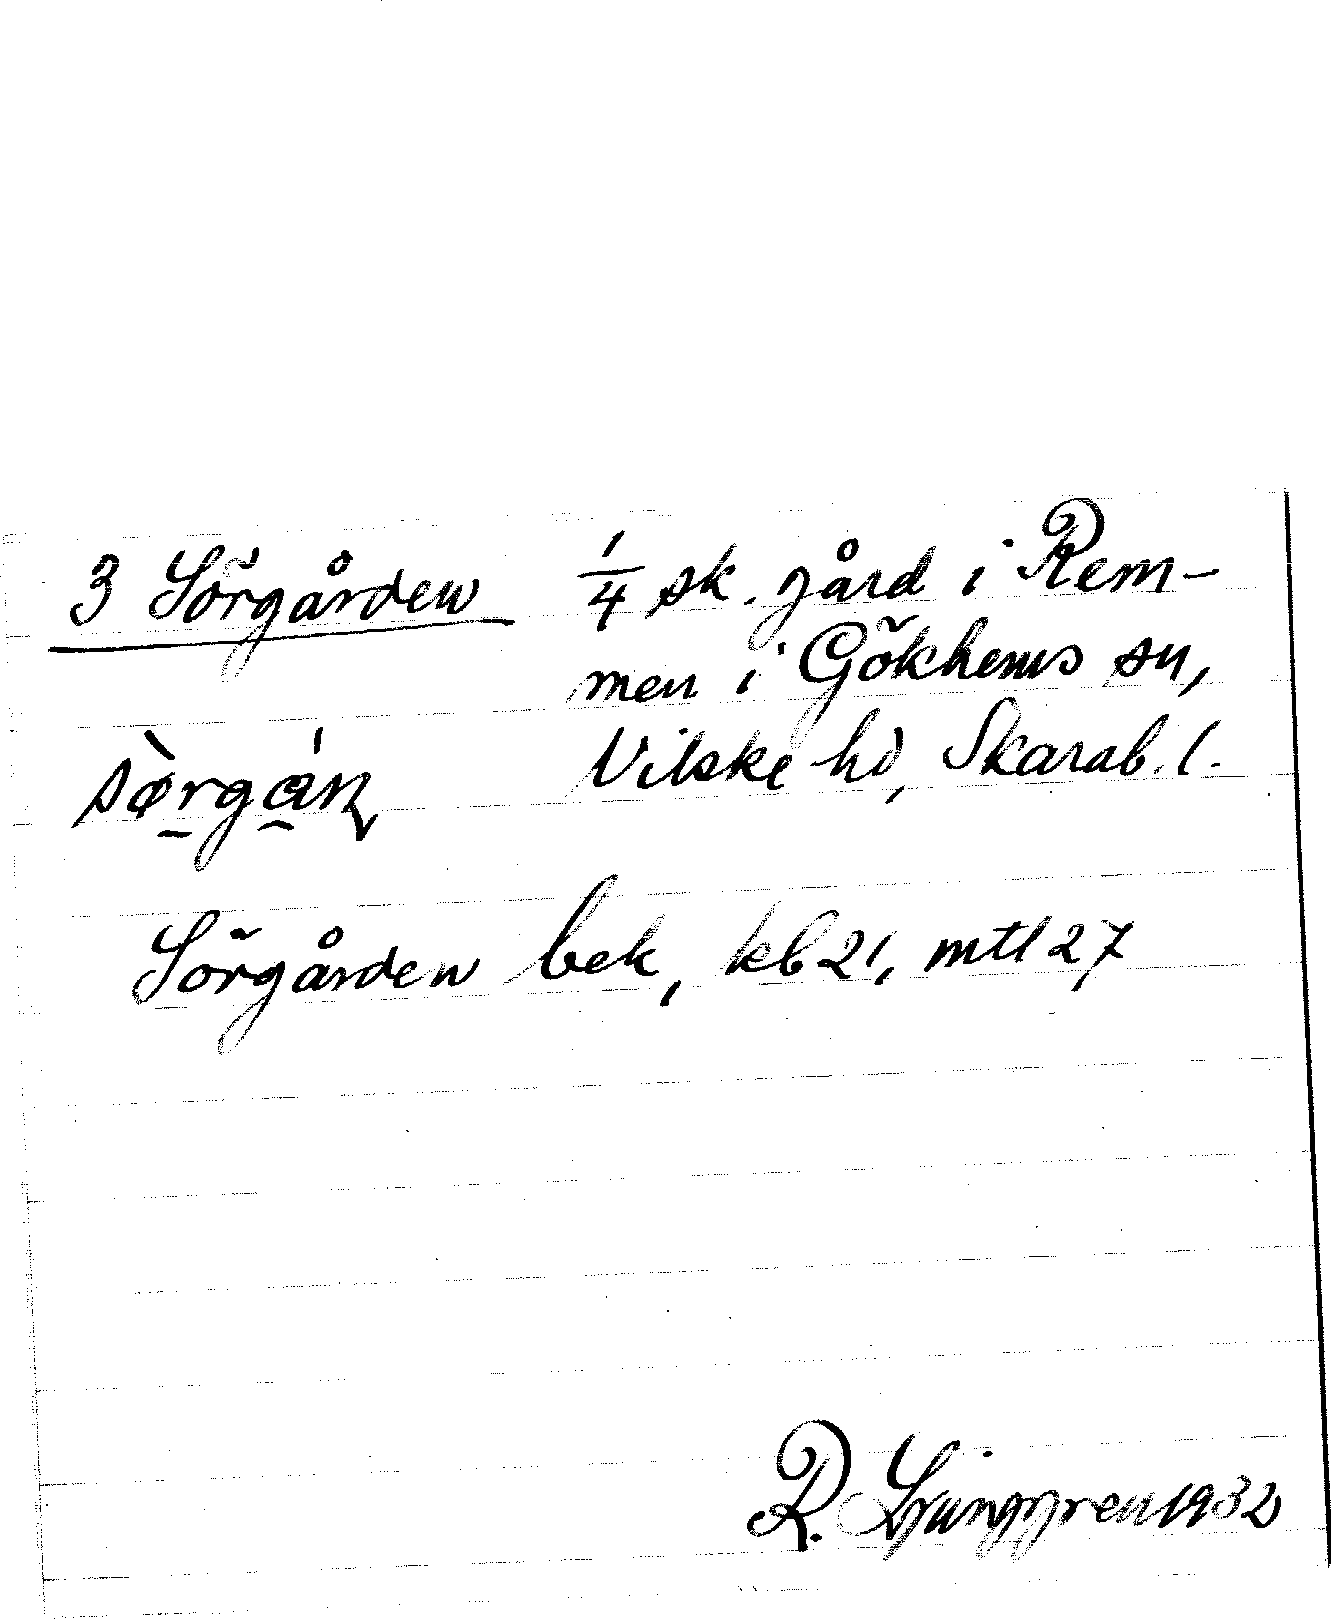 3 Sörgården 1/4 sk. gård i Rem-
men i Gökhems sn,
Vilske hd, Skarab. l.
sø̀rgán
Sörgården bek, kb 21, mtl 27
R. Ljunggren 1932